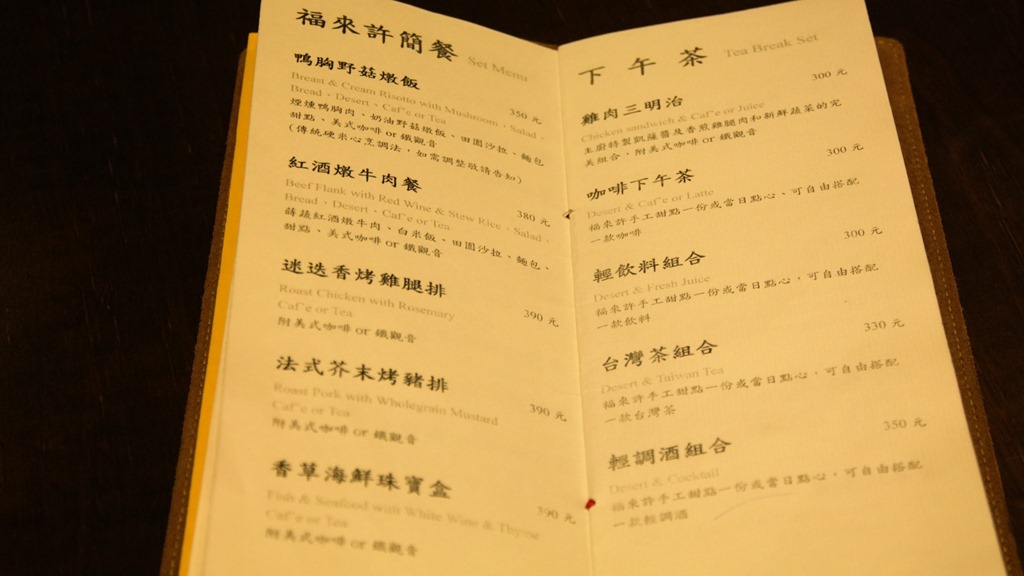 福來許簡餐 Set Menu
鴨胸野菇燉飯 350 元
Breast & Cream Risotto with Mushroom、Salad、
Bread、Desert、Caf'e or Tea
煙燻鴨胸肉、奶油野菇燉飯、田園沙拉、麵包
甜點、美式咖啡 or 鐵觀音
(傳統硬米心烹調法，如需調整敬請告知)
紅酒燉牛肉餐 380 元
Beef Flank with Red Wine & Stew Rice、Salad、
Bread、Desert、Caf'e or Tea
蒔蔬紅酒燉牛肉、白米飯、田園沙拉、麵包、
甜點、美式咖啡 or 鐵觀音
迷迭香烤雞腿排 390 元
Roast Chicken with Rosemary
Caf'e or Tea
附美式咖啡 or 鐵觀音
法式芥末烤豬排 390 元
Roast Pork with Wholegrain Mustard
Caf'e or Tea
附美式咖啡 or 鐵觀音
香草海鮮珠寶盒 390 元
Fish & Seafood with White Wine & Thyme
Caf'e or Tea
附美式咖啡 or 鐵觀音
下午茶 Tea Break Set
雞肉三明治 300 元
Chicken sandwich & Caf'e or Juice
主廚特製凱薩醬及香煎雞腿肉和新鮮蔬菜的完
美組合，附美式咖啡 or 鐵觀音
咖啡下午茶 300 元
Desert & Caf'e or Latte
福來許手工甜點一份或當日點心、可自由搭配
一款咖啡
輕飲料組合 300 元
Desert & Fresh Juice
福來許手工甜點一份或當日點心，可自由搭配
一款飲料
台灣茶組合 330 元
Desert & Taiwan Tea
福來許手工甜點一份或當日點心，可自由搭配
一款台灣茶
輕調酒組合 350 元
Desert & Cocktail
福來許手工甜點一份或當日點心，可自由搭配
一款輕調酒